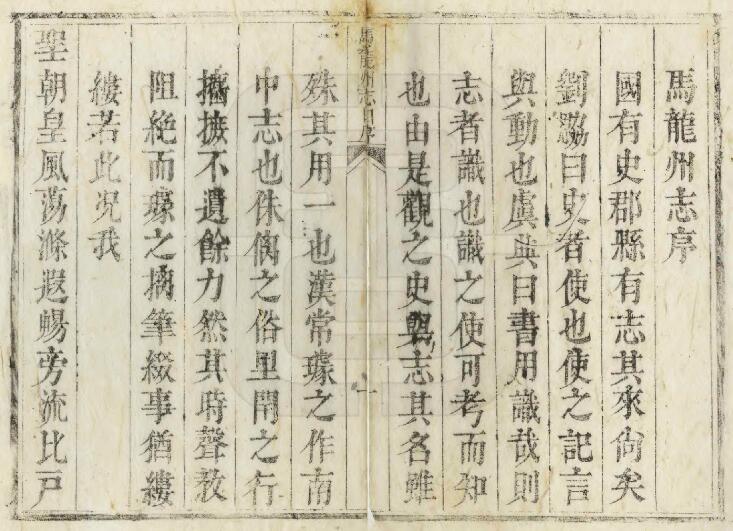 馬龍州志序
國有史郡縣有志其來尙矣
劉勰曰史者使也使之記言
與動也虞典曰書用識哉則
志者識也識之使可考而知
也由是觀之史與志其名雖
馬龍州志序
一
殊其用一也漢常璩之作南
中志也侏㒧之俗里閈之行
攟摭不遺餘力然其時聲教
阻絶而璩之摛筆綴事猶縷
縷若此况我
聖朝皇風蕩滌遐暢旁流比戸